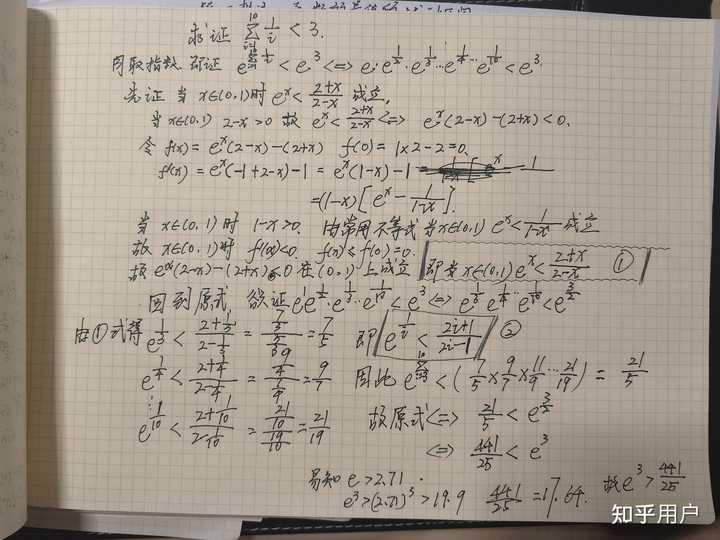 求证 \sum_{i=1}^{10} \frac{1}{i} < 3.
同取指数 即证 e^{\sum_{i=1}^{10} \frac{1}{i}} < e^3 <=> e·e^{\frac{1}{2}}·e^{\frac{1}{3}}…e^{\frac{1}{9}}e^{\frac{1}{10}} < e^3.
先证 当 x∈(0,1)时 e^x < \frac{2+x}{2-x} 成立,
当 x∈(0,1) 2-x>0 故 e^x < \frac{2+x}{2-x} <=> e^x(2-x)-(2+x)<0.
令 f(x) = e^x(2-x)-(2+x) f(0) = 1×2-2=0.
f'(x) = e^x(-1+2-x)-1 = e^x(1-x)-1
=(1-x)[e^x - \frac{1}{1-x}].
当 x∈(0,1) 时 1-x>0. 由常用不等式当x∈(0,1) e^x < \frac{1}{1-x} 成立
故 x∈(0,1)时 f'(x)<0. f(x)<f(0)=0.
故 e^x(2-x)-(2+x)<0 在 (0,1)上成立 即当 x∈(0,1) e^x < \frac{2+x}{2-x} ①
回到原式 欲证 e^1 e^{\frac{1}{2}}·e^{\frac{1}{3}}…e^{\frac{1}{10}} < e^3 <=> e^{\frac{1}{3}} e^{\frac{1}{4}}…e^{\frac{1}{10}} < e^{\frac{3}{2}}
由①式得 e^{\frac{1}{3}} < \frac{2+\frac{1}{3}}{2-\frac{1}{3}} = \frac{\frac{7}{3}}{\frac{5}{3}} = \frac{7}{5} 即 e^{\frac{1}{i}} < \frac{2i+1}{2i-1} ②
e^{\frac{1}{4}} < \frac{2+\frac{1}{4}}{2-\frac{1}{4}} = \frac{\frac{9}{4}}{\frac{7}{4}} = \frac{9}{7} 因此 < (\frac{7}{5}×\frac{9}{7}×\frac{11}{9}…\frac{21}{19}) = \frac{21}{5}
⋮
e^{\frac{1}{10}} < \frac{2+\frac{1}{10}}{2-\frac{1}{10}} = \frac{\frac{21}{10}}{\frac{19}{10}} = \frac{21}{19} 故原式<=> \frac{21}{5} < e^{\frac{3}{2}}
<=> \frac{441}{25} < e^3
易知 e>2.71.
e^3>(2.71)^3>19.9 \frac{441}{25}=17.64. 故 e^3>\frac{441}{25}
知乎用户